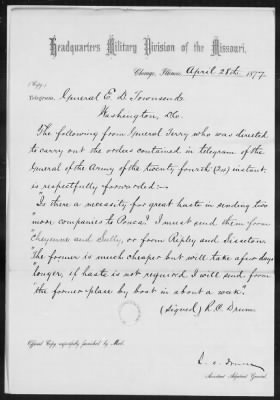 Headquarters Military Division of the Missouri.
Chicago, Illinois, April 28th 1877
(Copy)
Telegram. General E. D. Townsend
Washington, D.C.
The following from General Terry who was directed
to carry out the orders contained in telegram of the
General of the Army of the twenty fourth (24) instant
is respectfully forwarded:—
"Is there a necessity for great haste in sending two
"more companies to Ponca? I must send them from
"Cheyenne and Sully, or from Ripley and Sisseton.
"The former is much cheaper but will take a few days
"longer, if haste is not required I will send from
"the former place by boat in about a week."
(signed) R. C. Drum
Official Copy respectfully furnished by Mail.
Assistant Adjutant General.